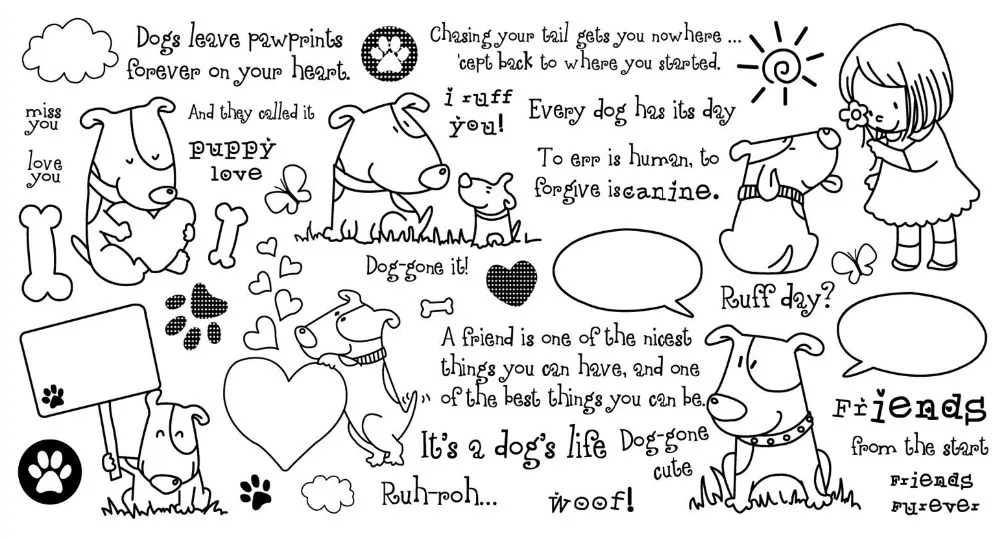 Dogs leave pawprints
forever on your heart.
Chasing your tail gets you nowhere ...
'cept back to where you started.
miss
you
love
you
And they called it
puppy
love
i ruff
you!
Every dog has its day
To err is human, to
forgive is canine.
Dog-gone it!
Ruff day?
A friend is one of the nicest
things you can have, and one
of the best things you can be.
It's a dog's life
Dog-gone
cute
Ruh-roh...
woof!
Friends
from the start
Friends
Furever